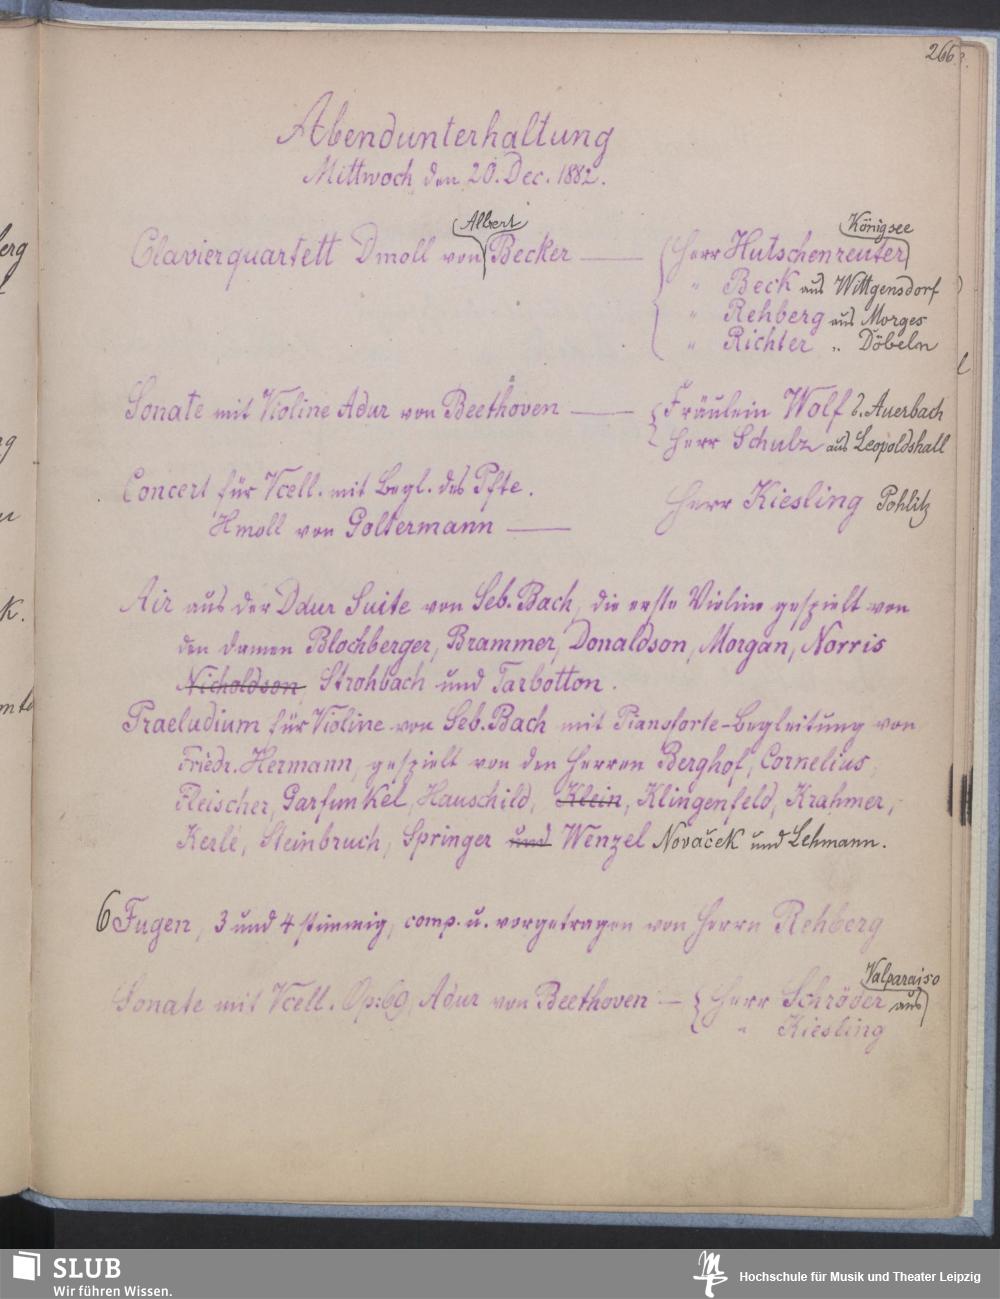 266.
Abendunterhaltung
Mittwoch den 20. Dec. 1882.
Clavierquartett Dmoll von Albert Becker — Herr Hutschenreuter Königsee
" Beck aus Wittgensdorf
" Rehberg aus Morges
" Richter " Döbeln
Sonate mit Violine Adur von Beethoven — Fräulein Wolf a. Auerbach
Herr Schulz aus Leopoldshall
Concert für Vcell. mit Begl. des Pfte.
Hmoll von Goltermann — Herr Kiesling Pohlitz
Air aus der Ddur Suite von Seb. Bach, die erste Violine gespielt von
den Damen Blochberger, Brammer, Donaldson, Morgan, Norris
Nicholdson, Strohbach und Tarbotton.
Praeludium für Violine von Seb. Bach mit Pianoforte-Begleitung von
Friedr. Hermann, gespielt von den Herren Berghof, Cornelius,
Fleischer, Garfunkel, Hauschild, Klein, Klingenfeld, Krahmer,
Kerlé, Steinbruch, Springer und Wenzel Nováček und Lehmann.
6 Fugen, 3 und 4 stimmig, comp. u. vorgetragen von Herrn Rehberg
Sonate mit Vcell. Op: 69, Adur von Beethoven — Herr Schröder aus Valparaiso
" Kiesling
SLUB
Wir führen Wissen.
Hochschule für Musik und Theater Leipzig